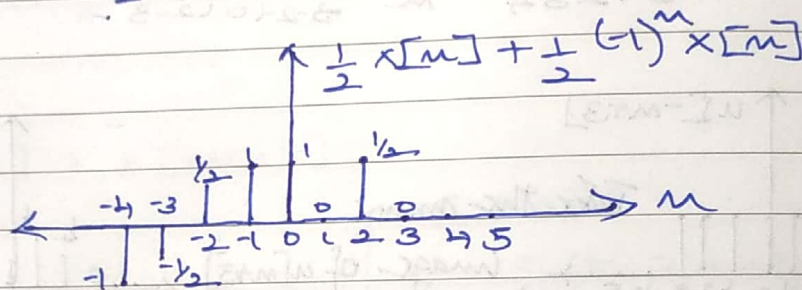 1/2 x[n] + 1/2 (-1)^n x[n]
1/2 1 1 1/2
-4 -3 0 0 n
-2 -1 0 1 2 3 4 5
-1 -1/2